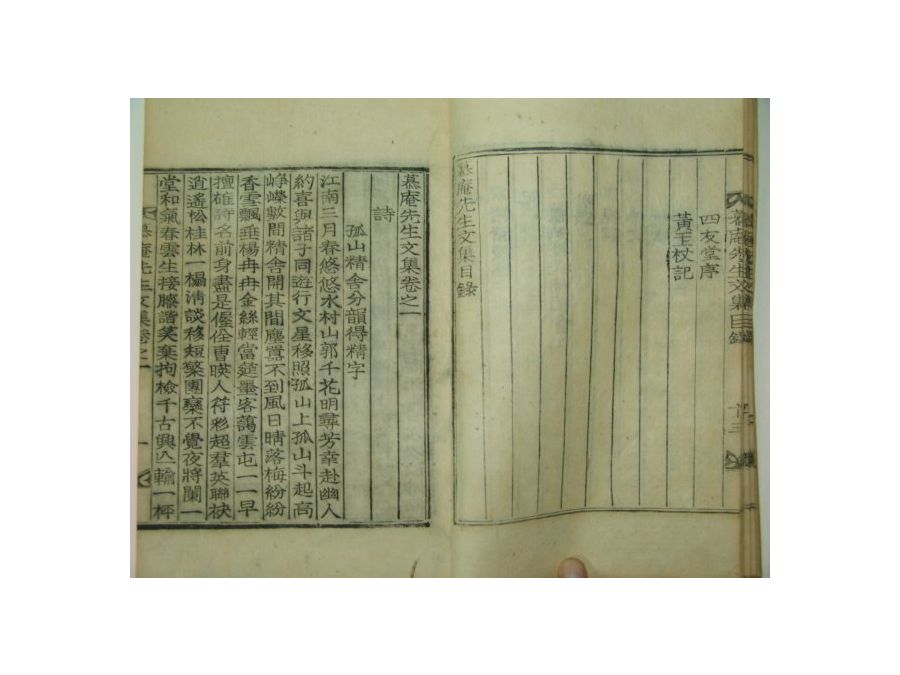 四友堂序
黃玉杖記
慕庵先生文集目錄
慕庵先生文集卷之一
詩
孤山精舍分韻得精字
江南三月春悠悠水村山郭千花明尋芳幸赴幽人
約喜與諸子同遊行文星移照孤山上孤山斗起高
崢嶸數間精舍開其間塵囂不到風日晴落梅紛紛
香雪飄垂楊冉冉金絲輕當筵墨客藹雲屯一一早
擅雄詩名前身盡是偓佺曹暎人符彩超羣英聯袂
逍遙松桂林一榻淸談移短檠團欒不覺夜將闌一
堂和氣春雲生接膝諧笑棄拘檢千古興亡輸一枰
慕庵先生文集卷之一